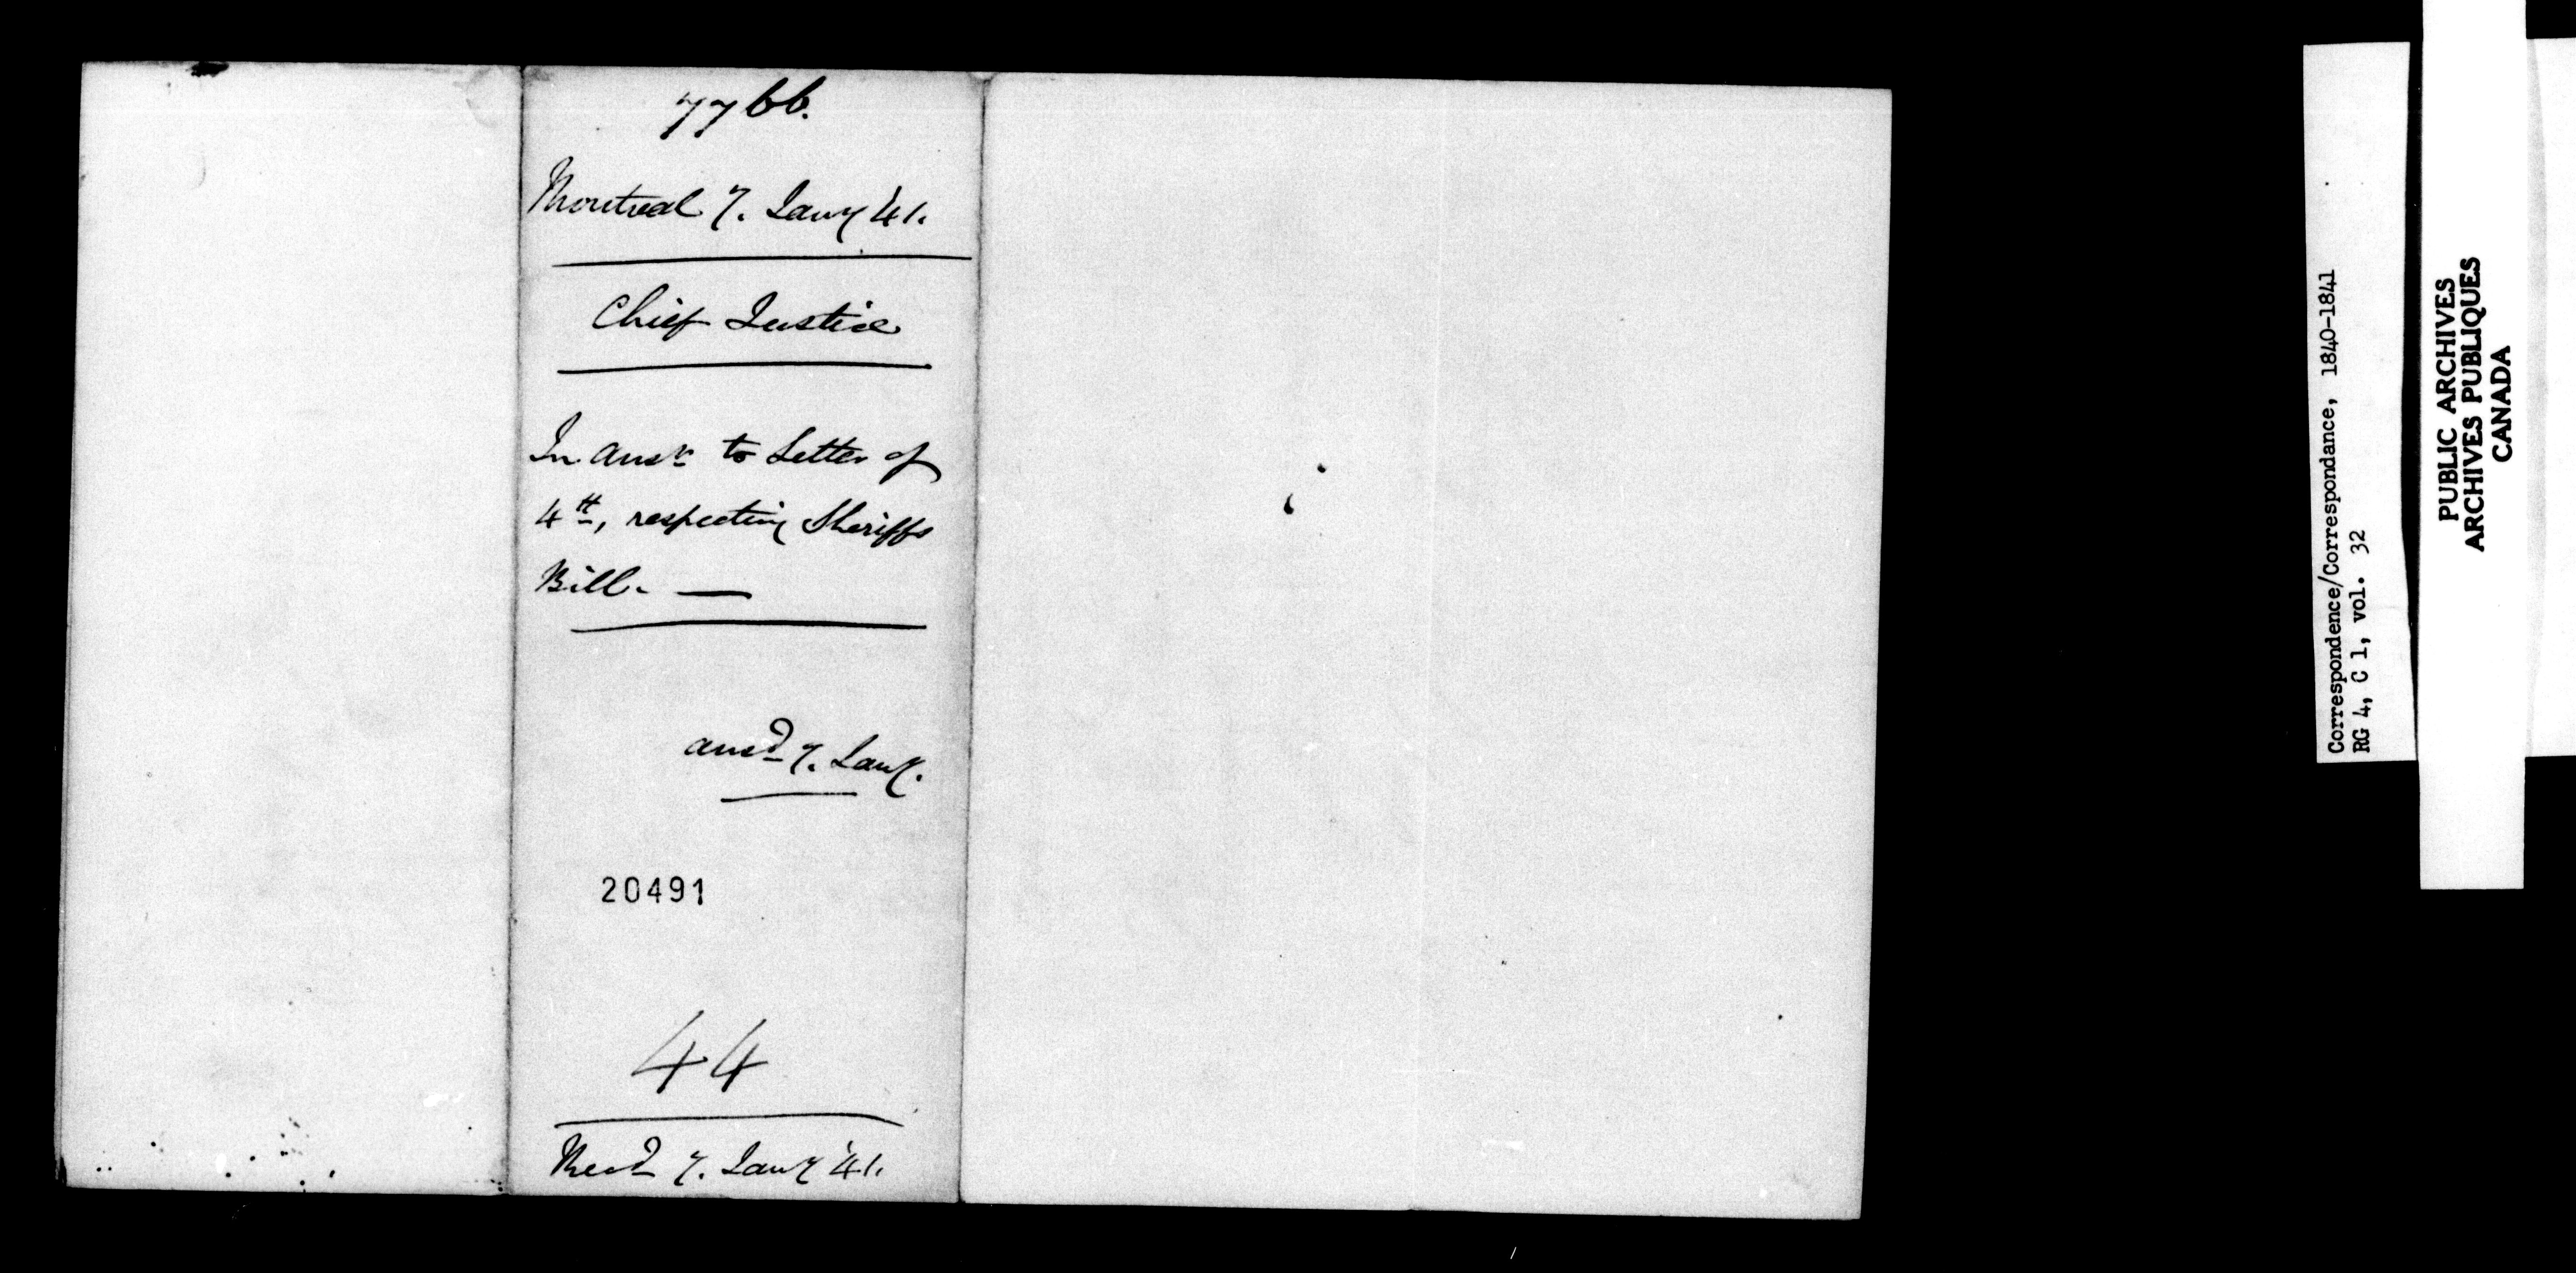 7766.
Montreal 7. Jany '41.
Chief Justice
In ansr. to Letter of
4th, respecting Sheriffs
Bill. —
ansd 7. Jany.
20491
44
Recd 7. Jany '41.
Correspondence/Correspondance, 1840-1841
RG 4, C 1, vol. 32
PUBLIC ARCHIVES
ARCHIVES PUBLIQUES
CANADA